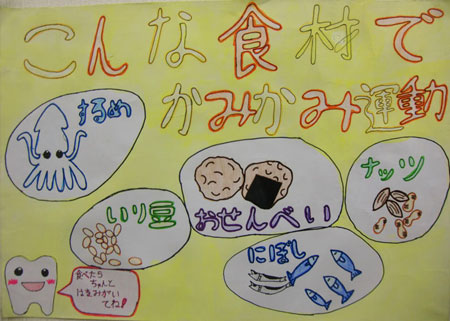 こんな食材で
かみかみ運動
するめ
ナッツ
いり豆
おせんべい
にぼし
食べたら
ちゃんと
はをみがい
てね!